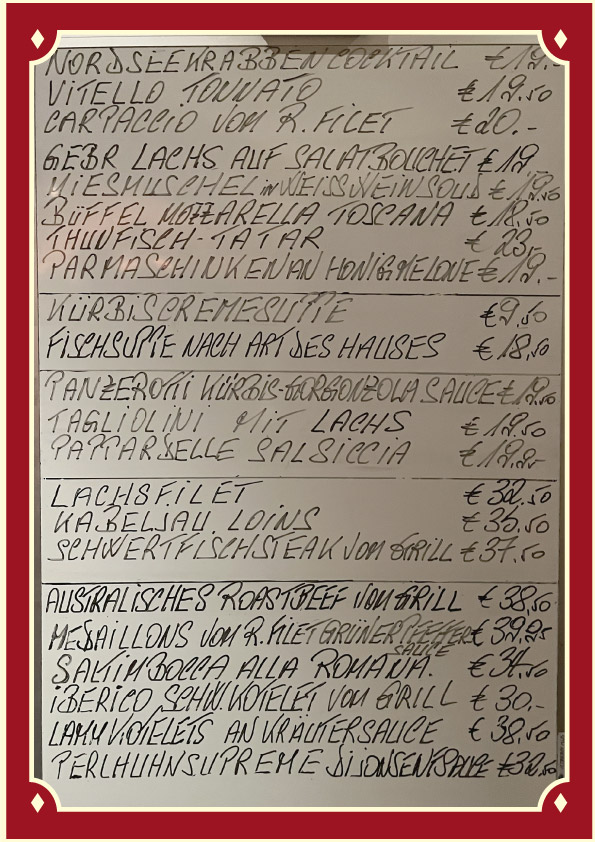 NORDSEEKRABBENCOCKTAIL €19.-
VITELLO TONNATO €19.50
CARPACCIO VOM R. FILET €20.-
GEBR LACHS AUF SALATBOUCHET €19
MIESMUSCHEL in WEISSWEINSOUD €19.50
BÜFFEL MOZZARELLA TOSCANA €18,50
THUNFISCH-TATAR €23,-
PARMASCHINKEN AN HONIGMELONE €19.-
KÜRBISCREMESUPPE €9.50
FISCHSUPPE NACH ART DES HAUSES €18,50
PANZEROTTI KÜRBIS-GORGONZOLA SAUCE €19.50
TAGLIOLINI MIT LACHS €19.50
PAPPARDELLE SALSICCIA
LACHSFILET €32.50
KABELJAU LOINS €36,50
SCHWERTFISCHSTEAK VOM GRILL €37.50
AUSTRALISCHES ROASTBEEF VOM GRILL €38,50
MEDAILLONS VOM R. FILET GRÜNER PFEFFER €39.95
SAUCE
SALTIMBOCCA ALLA ROMANA. €34,50
IBERICO SCHW. KOTELET VOM GRILL €30.-
LAMM KOTELETS AN KRÄUTERSAUCE €38,50
PERLHUHNSUPREME DIJONSENFSAUCE €32,50